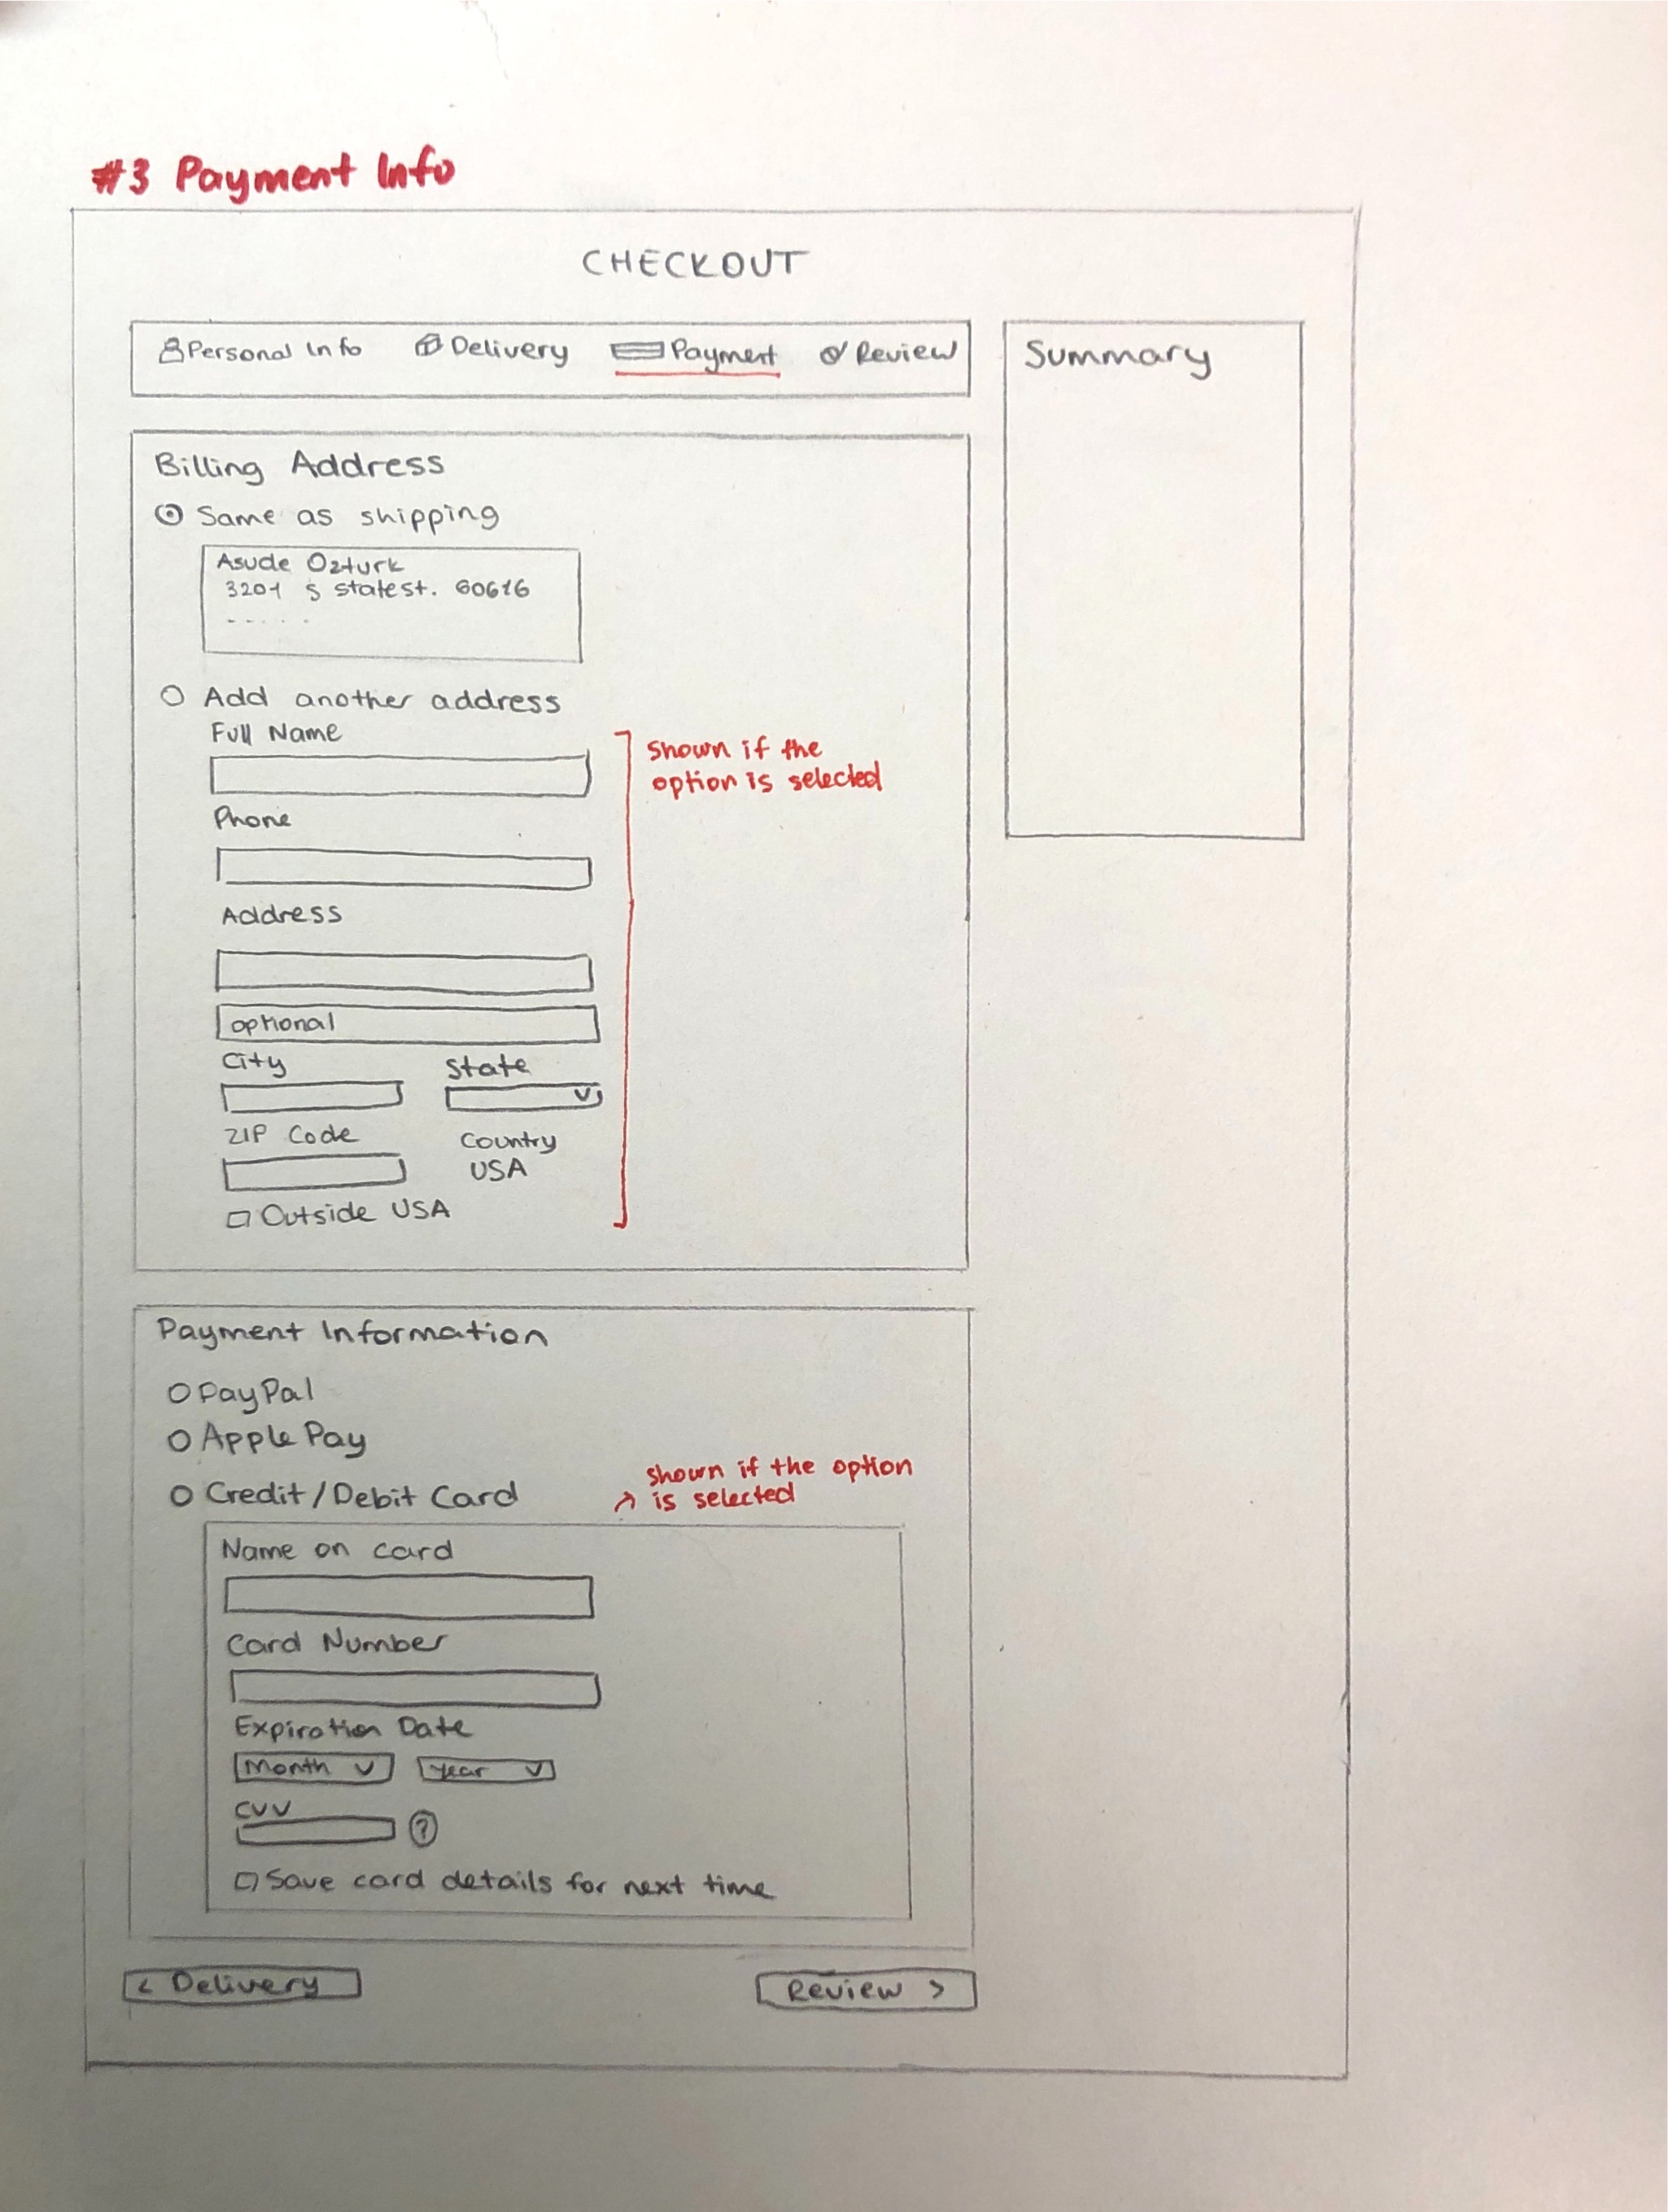 #3 Payment Info
CHECKOUT
Personal Info Delivery Payment Review
Summary
Billing Address
Same as shipping
Asude Ozturk
3201 S statest. 60616
Add another address
Full Name
shown if the
option is selected
Phone
Address
optional
City State
ZIP Code Country
USA
Outside USA
Payment Information
PayPal
Apple Pay
Credit/Debit Card
shown if the option
is selected
Name on card
Card Number
Expiration Date
Month Year
CVV ?
Save card details for next time
< Delivery Review >